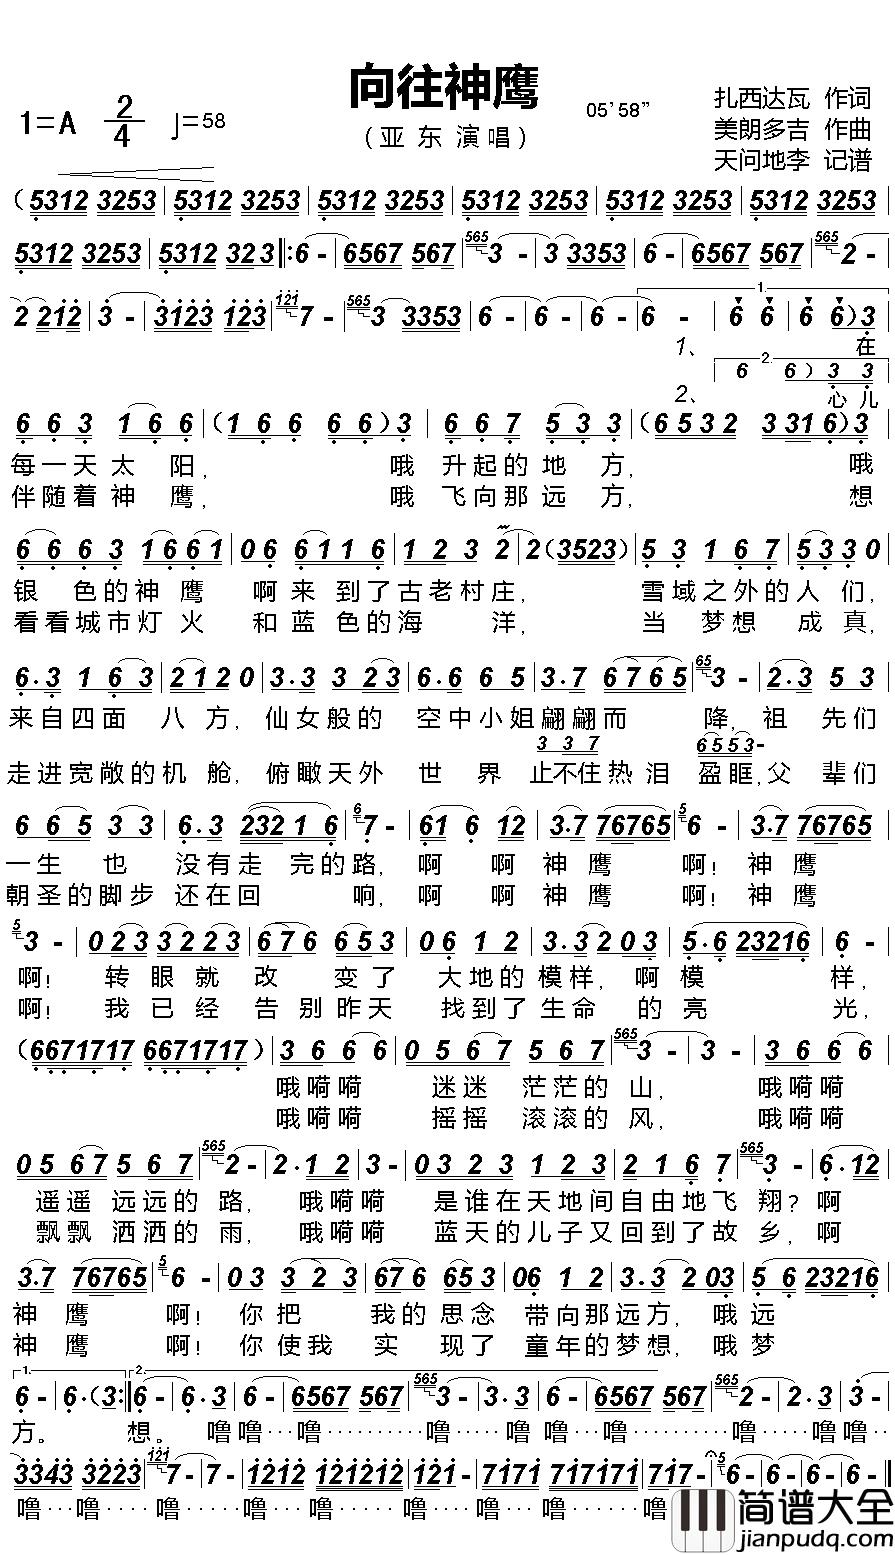 向往神鹰
1=A 2/4 ♩=58
（亚东演唱）
05'58"
扎西达瓦 作词
美朗多吉 作曲
天问地李 记谱
（5312 3253 | 5312 3253 | 5312 3253 | 5312 3253 | 5312 3253 | 5312 3253
5312 3253 | 5312 323 ‖: 6 - | 6567 567 | 565 3 - | 3 3353 | 6 - | 6567 567 | 565 2 -
2 212 | 3 - | 3123 123 | 121 7 - | 565 3 3353 | 6 - | 6 - | 6 - | 1. 6 - | 6 6 | 6 6） 3
1、 在
2. 6 6）3 3
2、 心儿
6 6 3 1 6 6 |（1 6 6 6 6）3 | 6 6 7 5 3 3 |（6532 3316）3
每一天太阳，哦升起的地方，哦
伴随着神鹰，哦飞向那远方，想
6 6 6 3 1661 | 06 6116 | 1 2 3 2 | 2（3523）| 5 3 1 6 7 | 5 3 3 3 0
银色的神鹰啊来到了古老村庄，雪域之外的人们，
看看城市灯火和蓝色的海洋，当梦想成真，
6·3 1 6 3 | 2120 | 3·3 3 23 | 6·6 6 5 | 3·7 6765 | 65 3 - | 2·3 5 3
来自四面八方，仙女般的空中小姐翩翩而降，祖先们
3 3 7 6553-
走进宽敞的机舱，俯瞰天外世界止不住热泪盈眶，父辈们
6 6 5 3 3 | 6·3 232 1 6 | 6 7 - | 61 6 12 | 3·7 76765 | 5 6 - | 3·7 76765
一生也没有走完的路，啊啊神鹰啊！神鹰
朝圣的脚步还在回响，啊啊神鹰啊！神鹰
5 3 - | 0 2 3 3 2 2 3 | 6 7 6 6 5 3 | 0 6 1 2 | 3·3 2 0 3 | 5·6 23216 | 6 -
啊！转眼就改变了大地的模样，啊模样，
啊！我已经告别昨天找到了生命的亮光，
（6671717 6671717）| 3 6 6 6 | 0 5 6 7 5 6 7 | 565 3 - | 3 - | 3 6 6 6
哦嗬嗬迷迷茫茫的山，哦嗬嗬
哦嗬嗬摇摇滚滚的风，哦嗬嗬
0 5 6 7 5 6 7 | 565 2 - | 2·1 2 | 3 - | 0 3 2 3 1 2 3 | 2 1 6 7 | 565 3 - | 6·12
遥遥远远的路，哦嗬嗬是谁在天地间自由地飞翔？啊
飘飘洒洒的雨，哦嗬嗬蓝天的儿子又回到了故乡，啊
3·7 76765 | 5 6 - | 0 3 3 2 3 | 676 653 | 06 1 2 | 3·3 2 03 | 5 6 23216
神鹰啊！你把我的思念带向那远方，哦远
神鹰啊！你使我实现了童年的梦想，哦梦
1. 6 - | 6·（3 :‖ 2. 6 - | 6·3 | 6 - | 6567 567 | 565 3 - | 3 - | 6 - | 6567 567 | 565 2 - | 2·3 | 3 -
方。想。噜噜···噜········噜·····噜········噜····噜噜
3343 3223 | 121 7 - | 7 - | 1212 1212 | 121 - | 7171 7171 71 | 717 - | 5 6 - | 6 - | 6 - ‖
噜···噜····噜····噜·······噜····噜··········噜
简谱大全
jianpudq.com